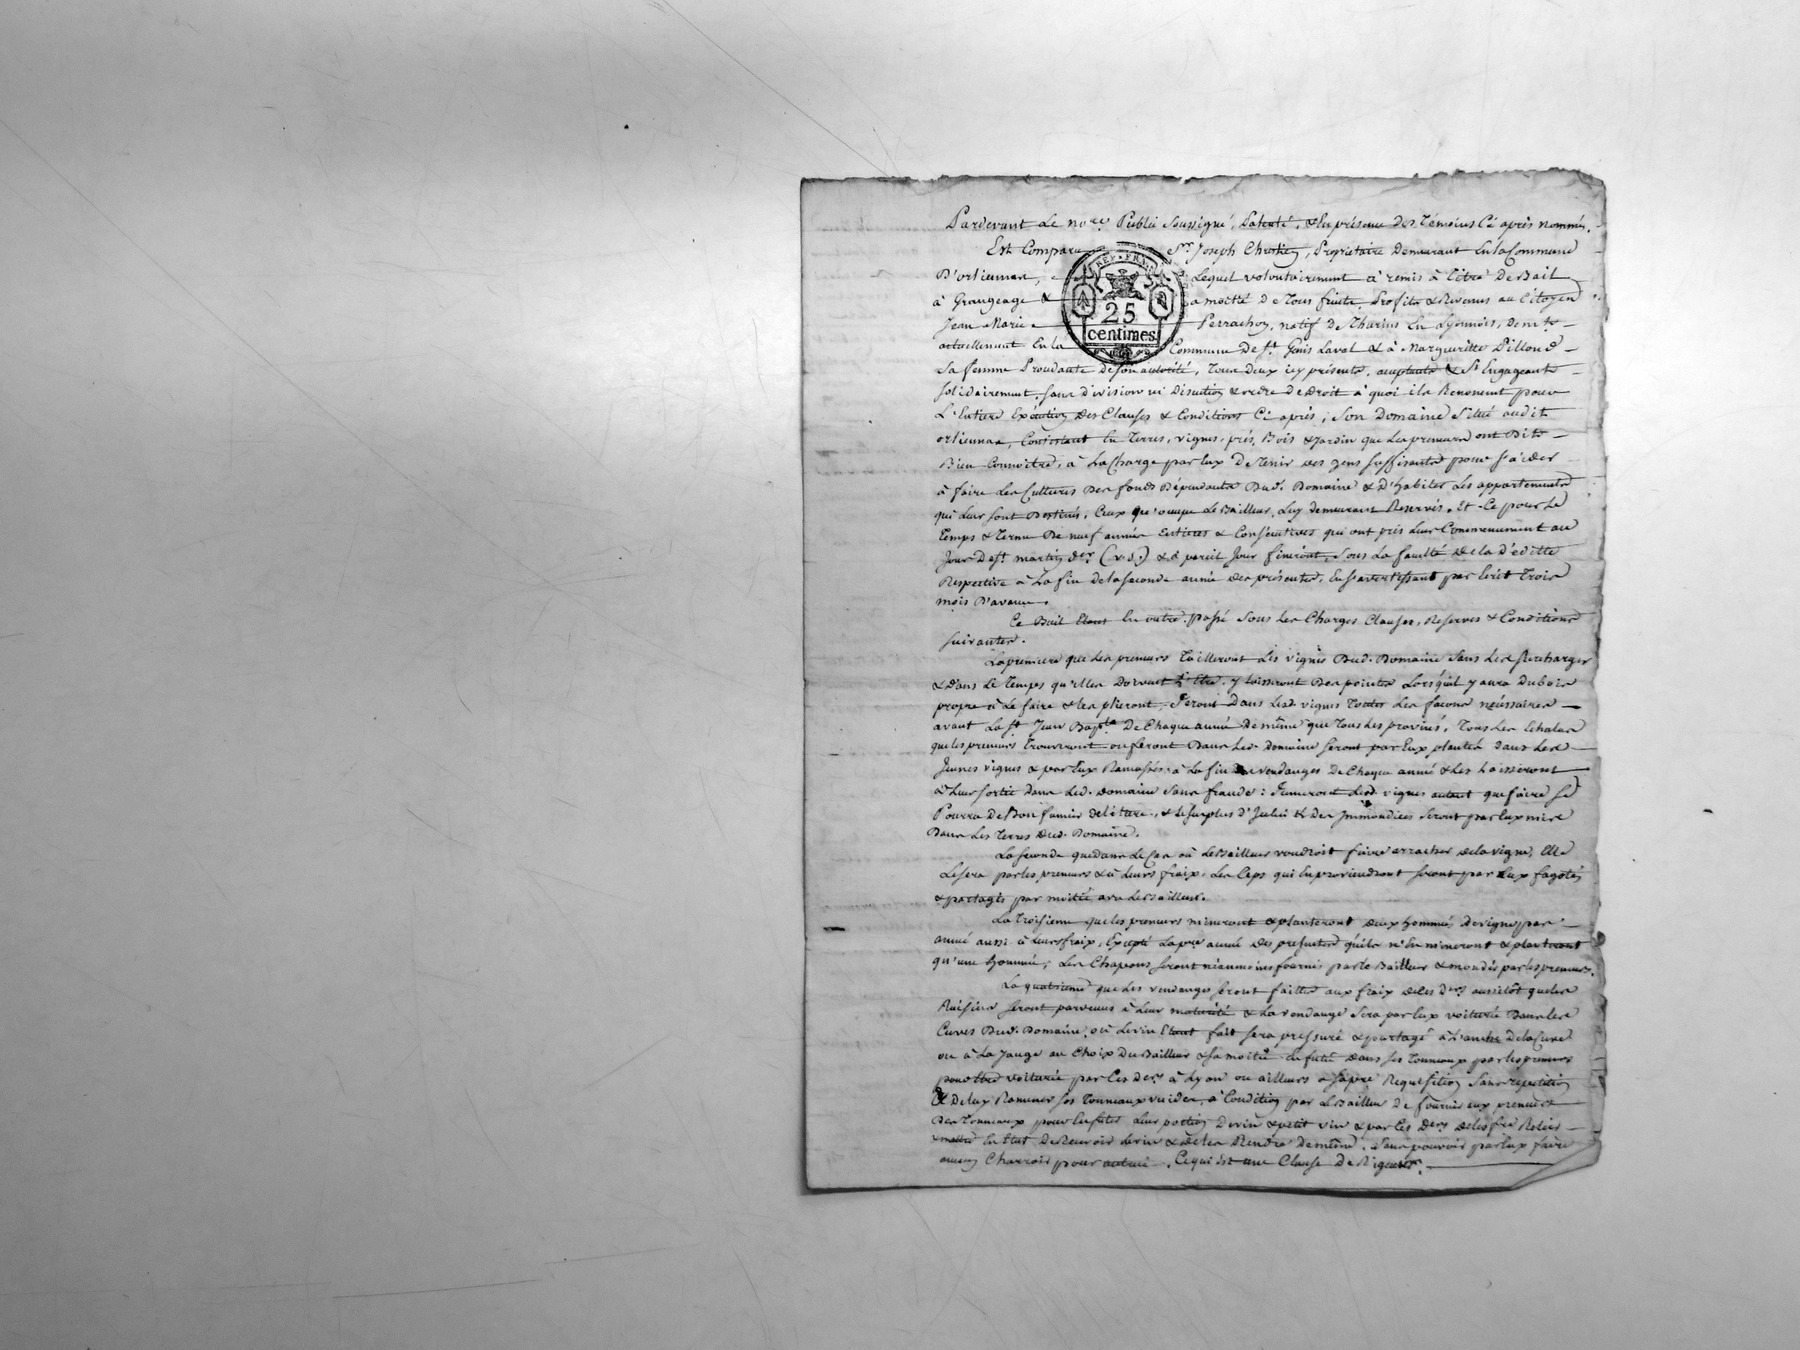 Pardevant Le no.re Public Soussigné, Patenté, & En présence des Témoins Ci après nommés.
Est Comparu Sr. Joseph Chretien, Propriétaire Demeurant En la Commune
D'orlienna, Lequel volontairement a remis à titre De Bail
à Grangeage & a moitié De Tous fruits Profits & Revenus au Citoyen
Jean Marie Perrachon, natif De Thurins En Lyonnois, dem.t
actuellement En la Commune De St. Genis Laval & à Margueritte Pilloud
Sa femme Procédante De son autorité, Tous Deux icy présents, acceptants & S'Engageants
Solidairement, Sans Division ni Discution & ordre De Droit à quoi ils Renoncent pour
L'Entiere Exécution Des Clauses & Conditions Ci après; Son Domaine Situé audit
orliennas, Consistant En Terres, vignes, prés, Bois & Jardin que Les preneurs ont Dits
Bien Connoitre, à La Charge par Eux De Tenir Des gens suffisants pour s'aider
à faire Les Cultures Des fonds Dépendants Dud. Domaine & D'habiter Les appartements
qui Leur sont Destinés, Ceux qu'occupe Le Bailleur, Luy demeurant Reservés. Et Ce pour Le
Temps & Terme De neuf années Entieres & Consécutives qui ont pris Leur Commencement au
Jour De St. martin der. (v.s.) & à pareil Jour finiront, Sous La faculté De la D'éditte
Respective à La fin De la Seconde année Des présentes, En s'avertissant par Ecrit Trois
mois D'avance.
Ce Bail Etant En outre passé Sous Les Charges Clauses, Reserves & Conditions
suivantes.
La premiere que Les preneurs Tailleront Les vignes Dud. Domaine Sans Les Surcharger
& Dans Le Temps qu'Elles Doivent L'Etre, y Laisseront Des pointes Lorsqu'il y aura Du bois
propre à Le faire & Les plieront, Feront Dans Lesd. vignes Toutes Les façons nécessaires
avant La St. Jean Bapt.te De Chaque année De même que Tous Les provins, Tous Les Echalas
que Les preneurs Trouveront ou feront Dans Led. Domaine seront par Eux plantés dans Les
Jeunes vignes & par Eux Ramassés à La fin Des vendanges De Chaque année & Les Laisseront
à Leur sortie Dans Led. Domaine Sans fraude: Fumeront Lesd. vignes autant que faire Se
Pourra De Bon fumier De litiere, & Le Surplus D'Icelui & Des Immondices Seront par Eux mis
Dans Les Terres Dud. Domaine.
La Seconde que Dans Le Cas où Le Bailleur voudroit faire arracher De la vigne, Elle
Le Sera par les preneurs & à Leurs fraix. Les Ceps qui En proviendront seront par Eux fagotés
& partagés par moitié avec Le Bailleur.
La Troisieme que les preneurs mineront & planteront deux hommées De vigne par
année aussi à Leurs fraix, Excepté La pre. année Des presentes qu'ils n'En mineront & planteront
qu'une hommée; Les Chapons seront néanmoins fournis par le Bailleur & mondés par les preneurs.
La quatrieme que Les vendanges Seront faittes aux fraix De Ces Ders. aussitôt que Les
Raisins Seront parvenus à Leur maturité & La vendange Sera par Eux voiturée Dans Les
Cuves Dud. Domaine, où Le vin Etant fait sera pressuré & partagé à L'anche De la Cuve
ou à La Jauge au Choix Du Bailleur & Sa moitié Enfutée Dans Ses Tonneaux par les preneurs
pour Etre voiturée par Ces Ders. à Lyon ou ailleurs à Sa pre. Requisition Sans repetition
& De Luy Ramener Ses Tonneaux vuides, à Condition par Le Bailleur De fournir aux preneurs
Des Tonneaux pour Enfuter Leur portion De vin & petit vin & par Ces Ders. De Les fre. Relier
& mettre En Etat De Recevoir Le vin & De Les Rendre De même, Sans pouvoir par Eux faire
aucun Charroir pour autrui. Ce qui Est une Clause De Rigueur.
REP. FRA.
25
centimes